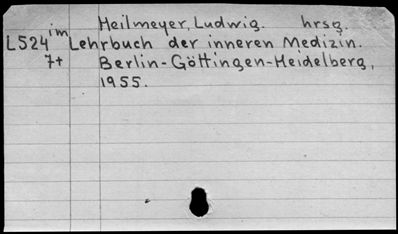 im Heilmeyer, Ludwig. hrsg.
L524 Lehrbuch der inneren Medizin.
7+ Berlin-Göttingen-Heidelberg,
1955.